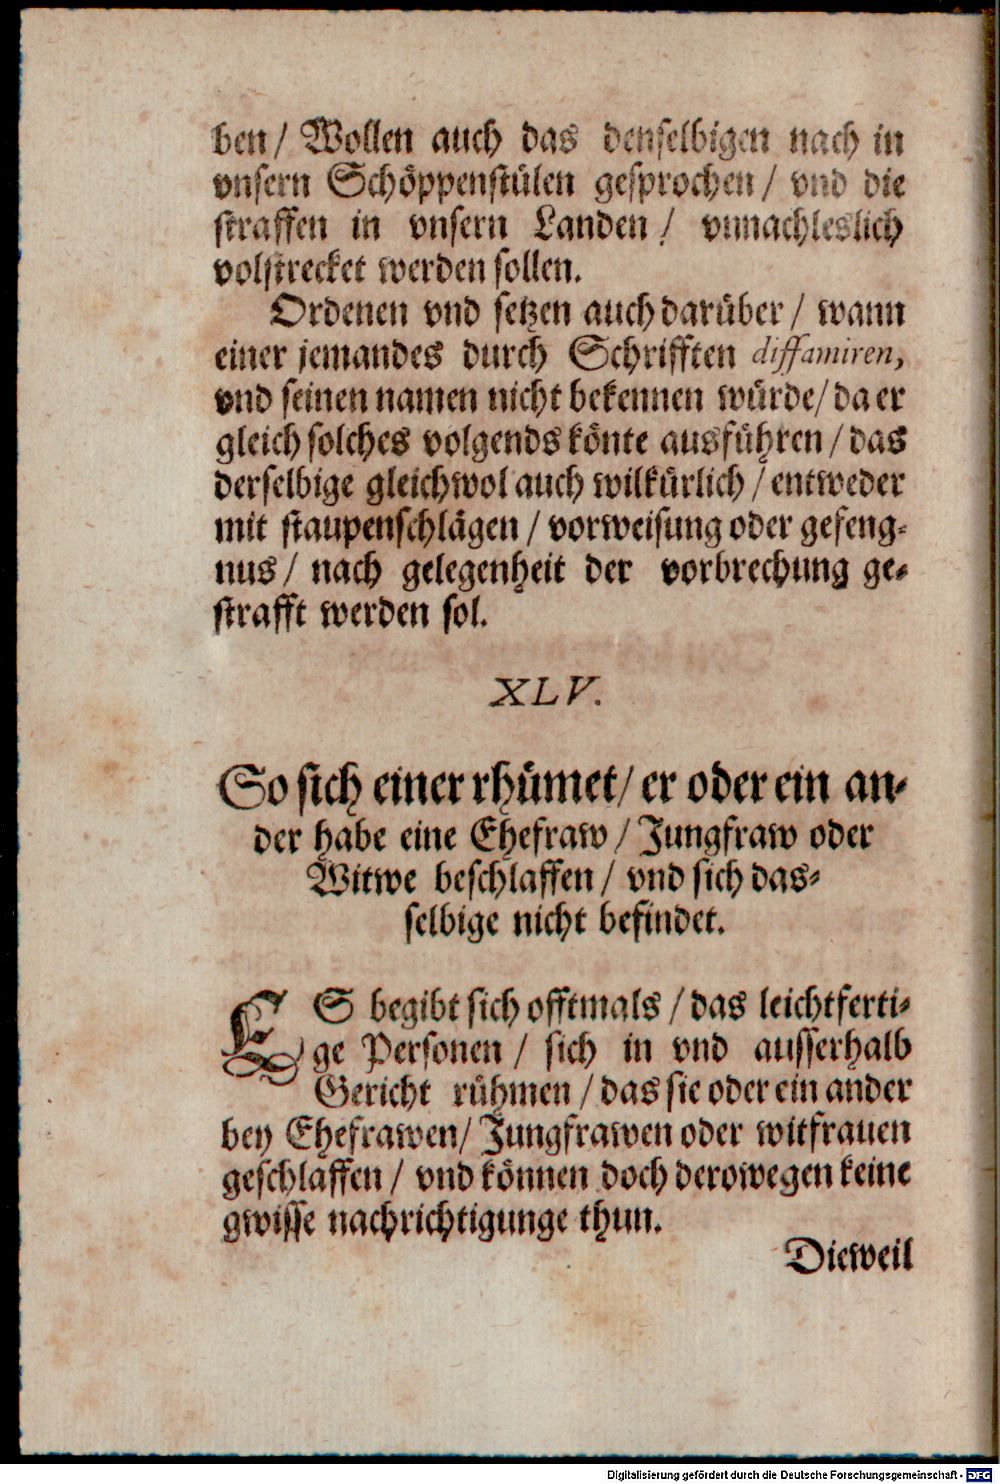 ben/ Wollen auch das denselbigen nach in
vnsern Schöppenstülen gesprochen/ vnd die
straffen in vnsern Landen/ vnnachleslich
volstrecket werden sollen.
Ordenen vnd setzen auch darüber/ wann
einer jemandes durch Schrifften diffamiren,
vnd seinen namen nicht bekennen würde/ da er
gleich solches volgends könte ausführen/ das
derselbige gleichwol auch wilkürlich/ entweder
mit staupenschlägen/ vorweisung oder gefeng-
nus/ nach gelegenheit der vorbrechung ge-
strafft werden sol.
XLV.
So sich einer rhümet/ er oder ein an-
der habe eine Ehefraw/ Jungfraw oder
Witwe beschlaffen/ vnd sich das-
selbige nicht befindet.
ES begibt sich offtmals/ das leichtferti-
ge Personen/ sich in vnd ausserhalb
Gericht rühmen/ das sie oder ein ander
bey Ehefrawen/ Jungfrawen oder witfrauen
geschlaffen/ vnd können doch derowegen keine
gwisse nachrichtigunge thun.
Dieweil
Digitalisierung gefördert durch die Deutsche Forschungsgemeinschaft - DFG